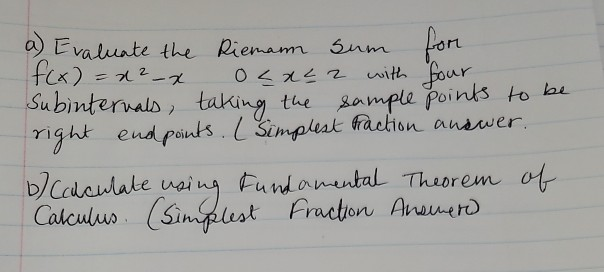 a) Evaluate the Riemann Sum for
f(x) = x² - x 0 ≤ x ≤ 2 with four
Subintervals, taking the sample points to be
right endpoints. ( Simplest fraction answer.
b) Calculate using Fundamental Theorem of
Calculus. (Simplest Fraction Answer)